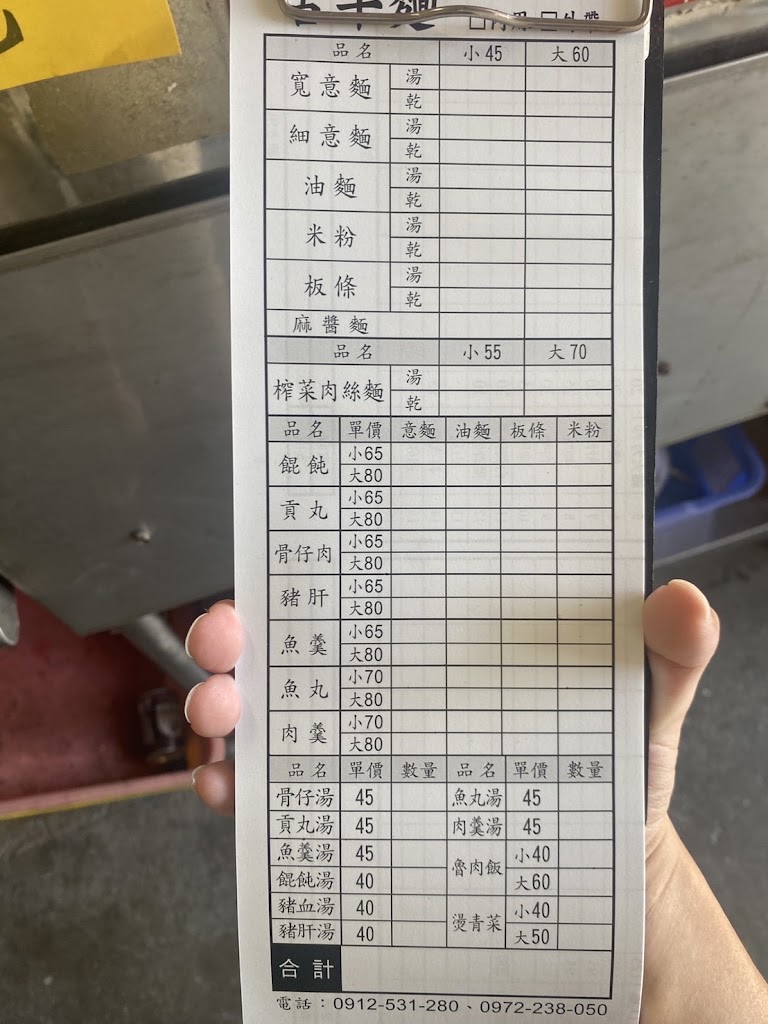 品名 小45 大60
寬意麵 湯
乾
細意麵 湯
乾
油麵 湯
乾
米粉 湯
乾
板條 湯
乾
麻醬麵
品名 小55 大70
榨菜肉絲麵 湯
乾
品名 單價 意麵 油麵 板條 米粉
餛飩 小65
大80
貢丸 小65
大80
骨仔肉 小65
大80
豬肝 小65
大80
魚羹 小65
大80
魚丸 小70
大80
肉羹 小70
大80
品名 單價 數量 品名 單價 數量
骨仔湯 45 魚丸湯 45
貢丸湯 45 肉羹湯 45
魚羹湯 45 魯肉飯 小40
餛飩湯 40 大60
豬血湯 40 燙青菜 小40
豬肝湯 40 大50
合計
電話：0912-531-280、0972-238-050